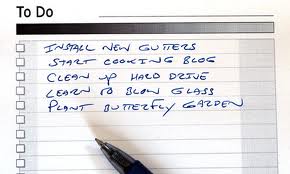 To Do
INSTALL NEW GUTTERS
START COOKING BLOG
CLEAN UP HARD DRIVE
LEARN TO BLOW GLASS
PLANT BUTTERFLY GARDEN